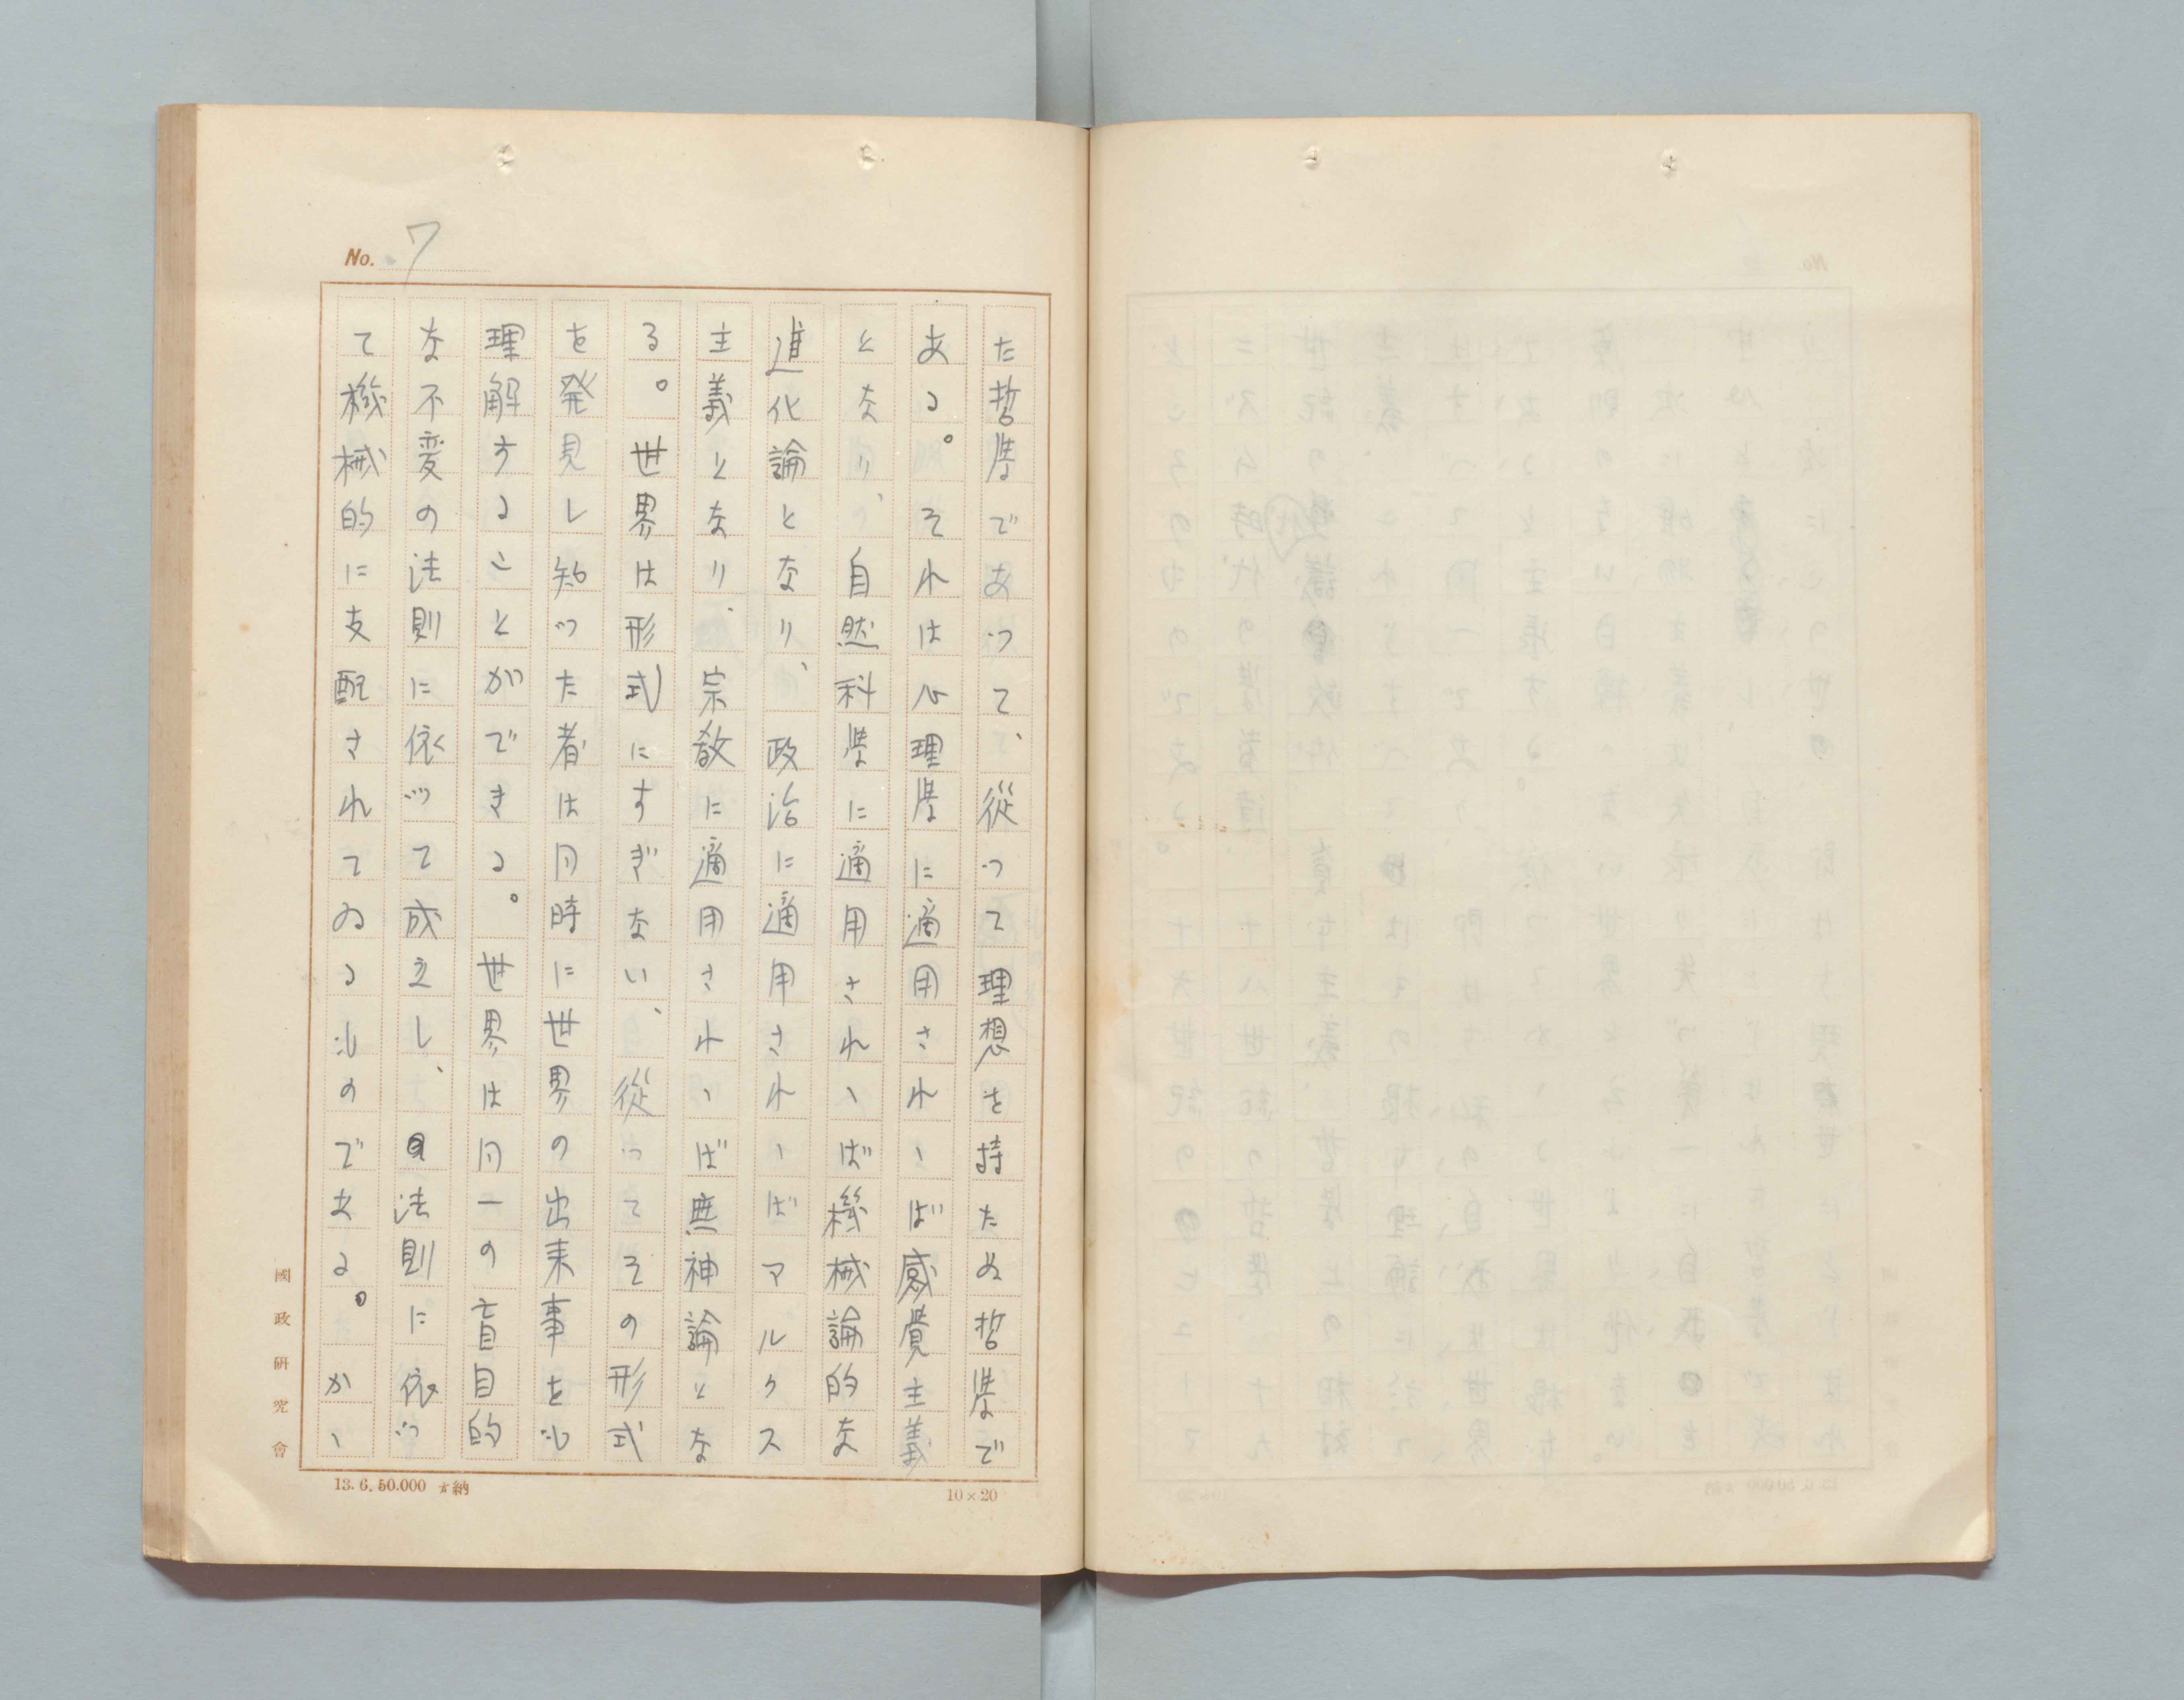 No. 7
た哲学であつて、従つて理想を持たぬ哲学で
ある。それは心理学に適用されゝば感覚主義
となり、自然科学に適用されゝば機械論的な
進化論となり、政治に適用されゝばマルクス
主義となり、宗教に適用されゝば無神論とな
る。世界は形式にすぎない、従つてその形式
を発見し知つた者は同時に世界の出来事をも
理解することができる。世界は同一の盲目的
な不変の法則に依つて成立し、法則に依つ
て機械的に支配されてゐるものである。かゝ
國政研究會
13.6.50.000 納
10×20